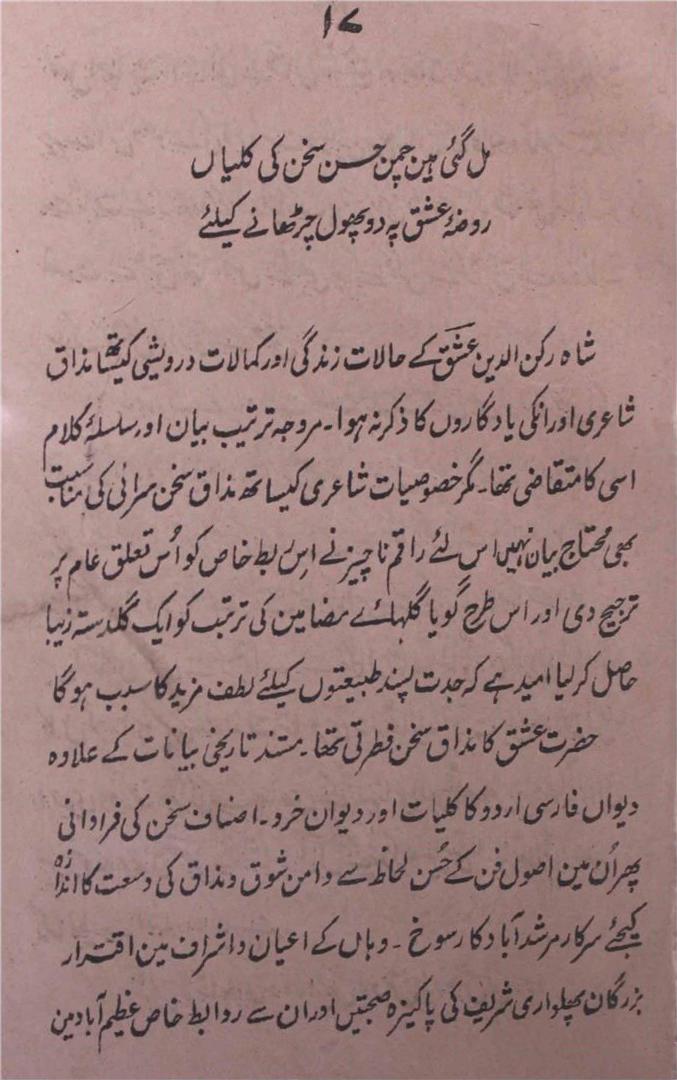 ۱۷
مل گئی ہین چمن حسن سخن کی کلیاں
روضۂ عشق پہ دو پھول چڑھانے کیلئے
شاہ رکن الدین عشق کے حالات زندگی اور کمالات درویشی کیساتھ مذاق
شاعری اور انکی یادگاروں کا ذکر نہ ہوا۔ مروجہ ترتیب بیان اور سلسلۂ کلام
اسی کا متقاضی تھا۔ مگر خصوصیات شاعری کیساتھ مذاق سخن سرائی کی مناسبت
بھی محتاج بیان نہیں اس لئے راقم ناچیز نے اِس ربط خاص کو اُس تعلق عام پر
ترجیح دی اور اس طرح گویا گلہائے مضامین کی ترتیب کو ایک گلدستہ زیبا
حاصل کر لیا امید ہے کہ جدت پسند طبیعتوں کیلئے لطف مزید کا سبب ہوگا
حضرت عشق کا مذاق سخن فطرتی تھا۔ مستند تاریخی بیانات کے علاوہ
دیواں فارسی اردو کا کلیات اور دیوان خرد۔ اصناف سخن کی فراوانی
پھر اُن مین اصول فن کے حُسن لحاظ سے دامن شوق و مذاق کی وسعت کا اندازہ
کیجئے سرکار مرشدآباد کا رسوخ ۔ وہاں کے اعیان و اشراف مین اقتدار
بزرگان پھلواری شریف کی پاکیزہ صحبتیں اور ان سے روابط خاص عظیم آباد مین